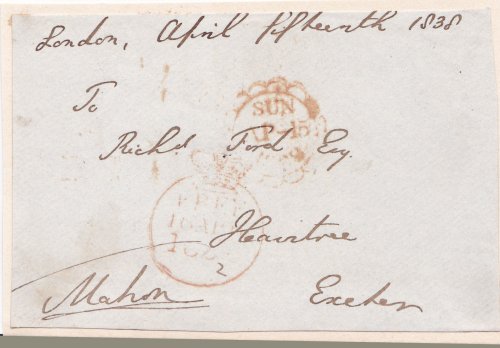 London, April fifteenth 1838
To
SUN
AP 15
Richd Ford Esq.
FREE
Heavitree
2
Mahon
Exeter